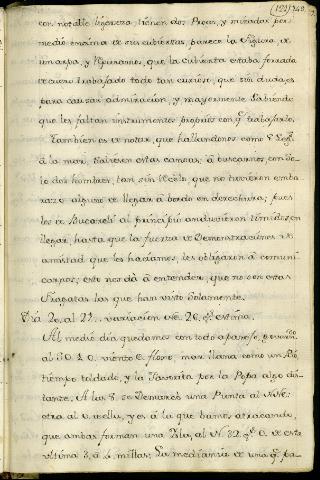 (122) 248.
con notable ligereza, tienen dos Proas, y miradas por
medio encima de sus cubiertas, parece la Figura de
un arpa, y
que la cubierta estaba forrada
de cuero trabajado todo tan curioso, que sin duda, es
para causar admiracion, y mayormente sabiendo
que les faltan instrumentos propios con q.e trabajarlo.
Tambien es de notar, que hallandonos como 5 Leg.s
à la mar, salieron estas canoas, à buscarnos con so-
lo dos hombres, tan sin recelo, que no tuvieron emba-
razo alguno de llegar à bordo en derechura; pues
los de Bucareli al principio anduvieron timidos en
llegar, hasta que la fuerza de Demostraciones de
amistad que les haciamos, les obligaron à comuni-
carnos; esto nos dà à entender, que no son estas
Fragatas las que han visto solamente.
Dia 20 al 21... variacion NE. 26. g.s estima.
Al medio dia, quedamos con todo aparejo,
al SO ¼ O. viento E. floxo, mar llana como un Rio,
tiempo toldado, y la Favorita por la Popa algo dis-
tante. A las 5. se Demarcò una Punta al
otra al
y es à la que vamos atracando
que ambas forman una Isla, al N. 32. g.s O. de esta
ultima 3, à 4. millas; La mediania de una g.e pa-